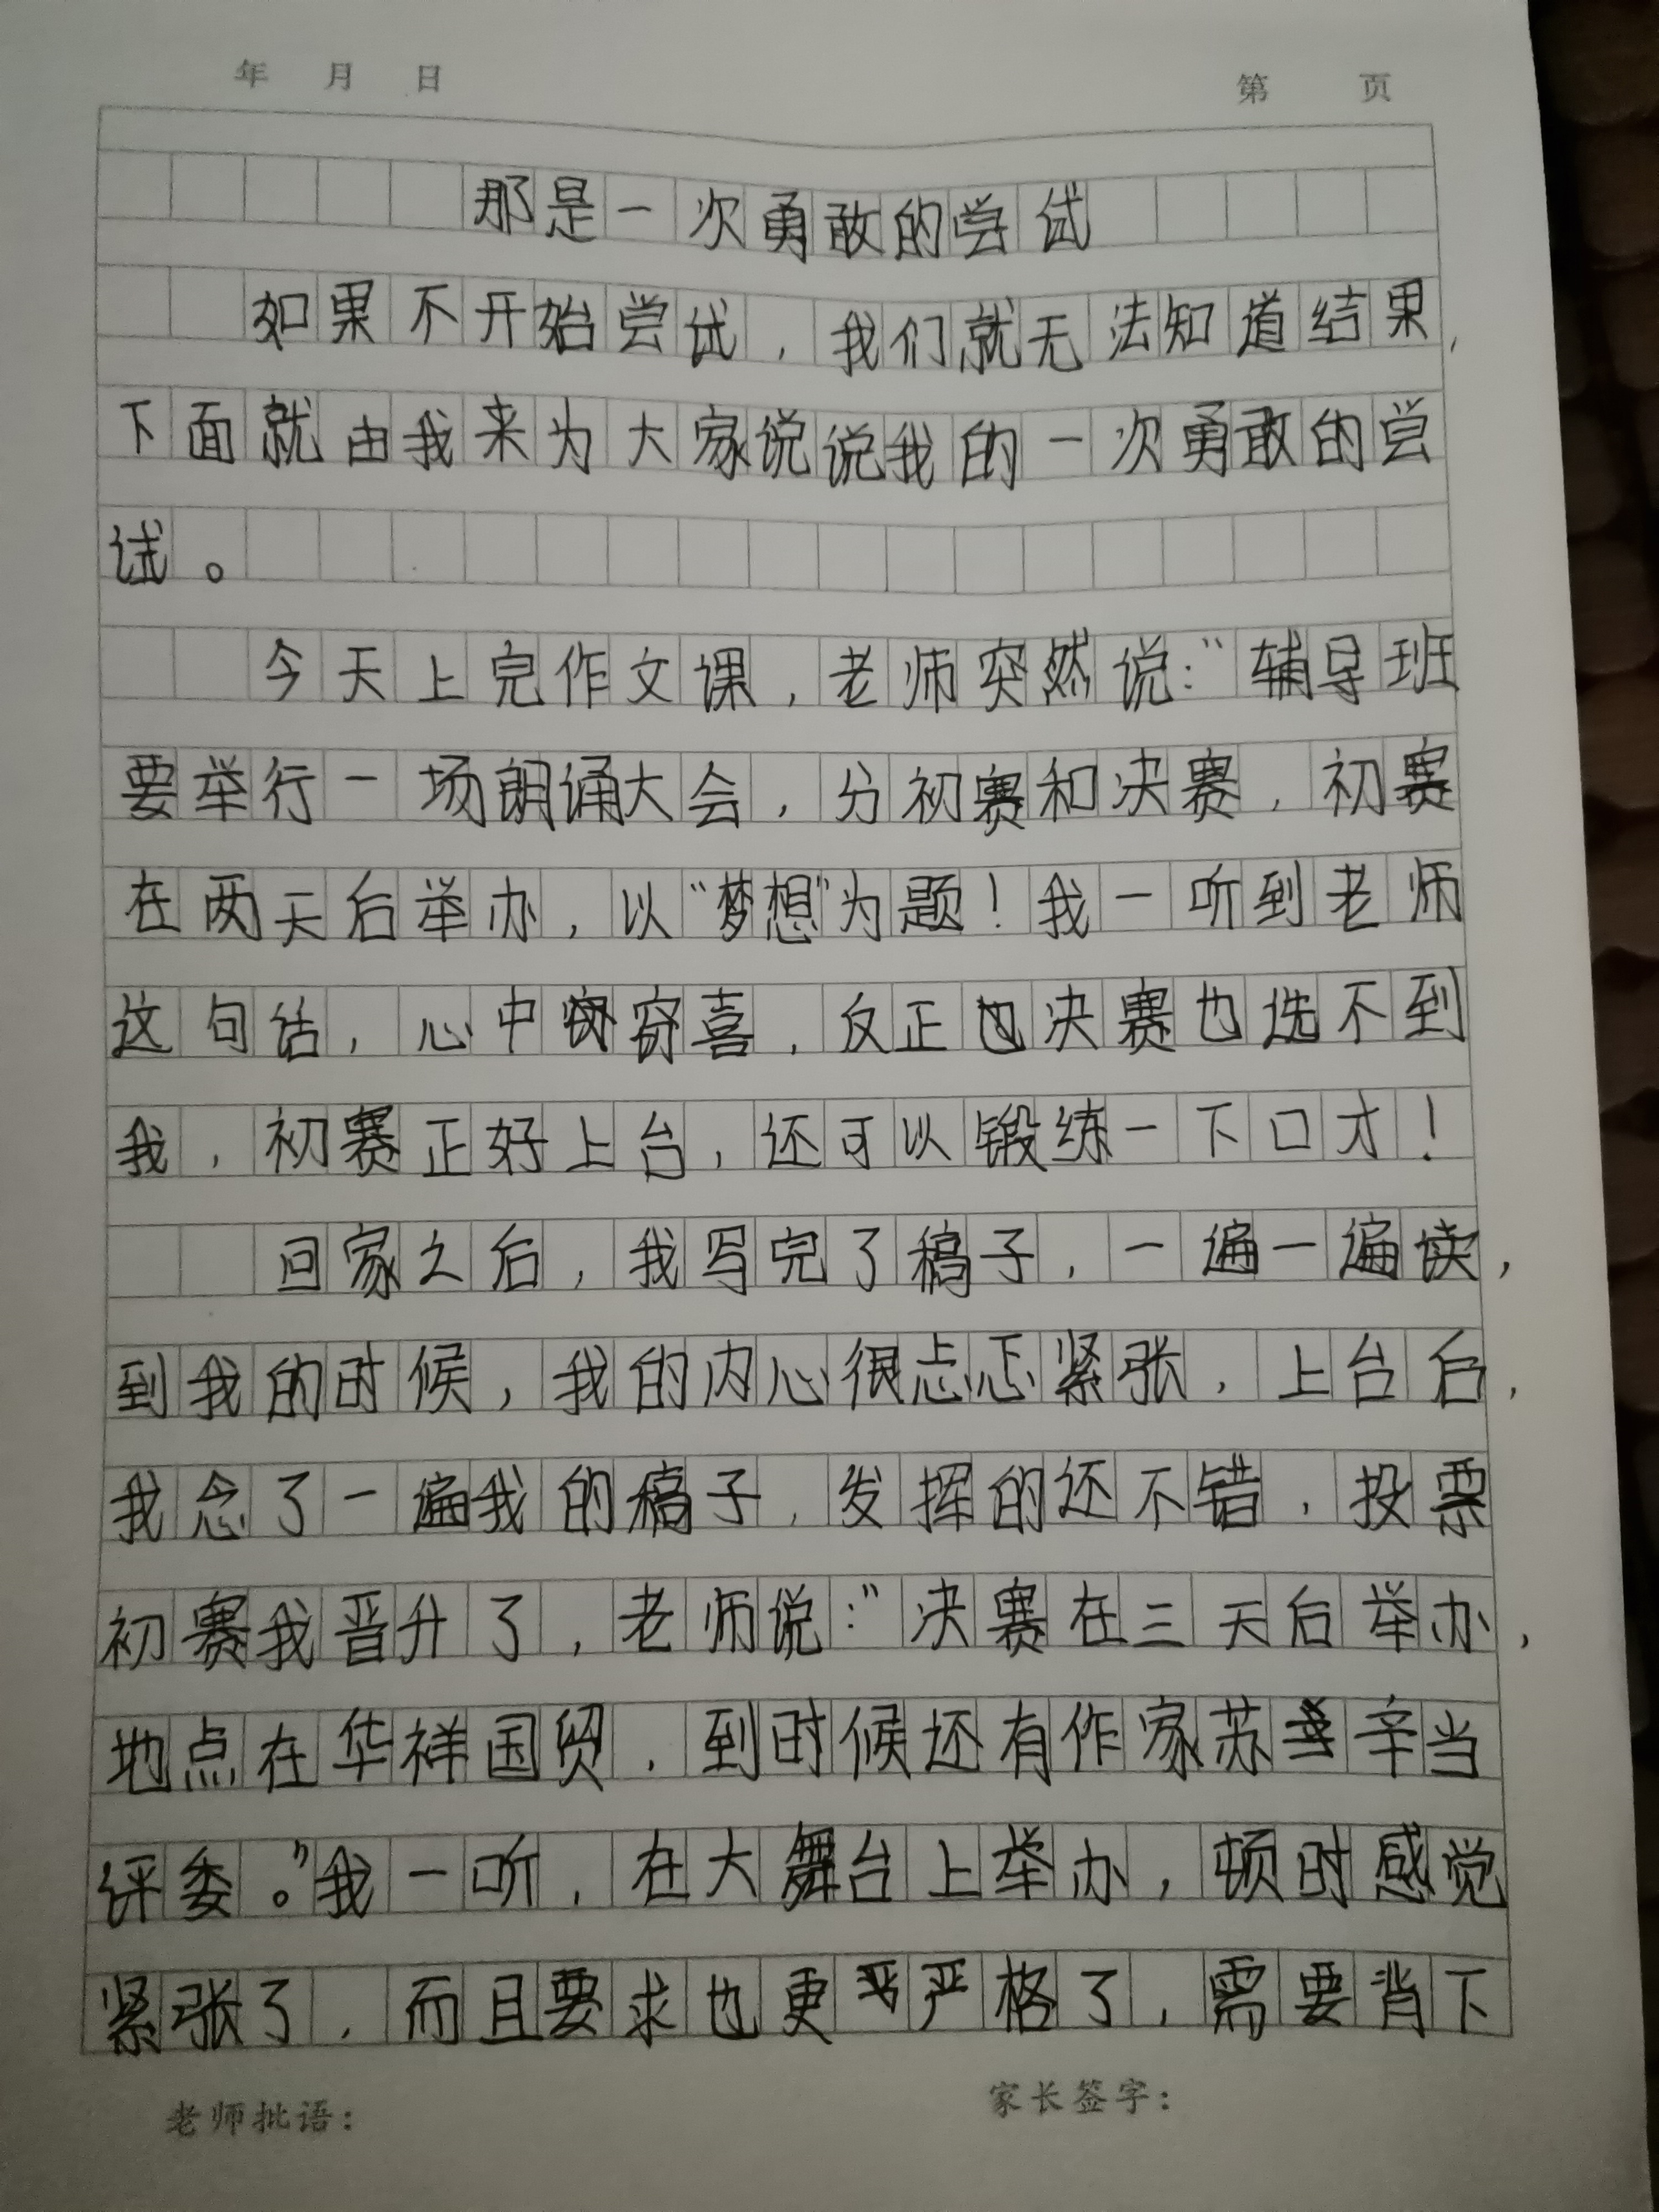 年 月 日 第 页
那是一次勇敢的尝试
如果不开始尝试，我们就无法知道结果，
下面就由我来为大家说说我的一次勇敢的尝
试。
今天上完作文课，老师突然说：“辅导班
要举行一场朗诵大会，分初赛和决赛，初赛
在两天后举办，以“梦想”为题！我一听到老师
这句话，心中窃喜，反正也决赛也选不到
我，初赛正好上台，还可以锻练一下口才！
回家之后，我写完了稿子，一遍一遍读，
到我的时候，我的内心很忐忑紧张，上台后，
我念了一遍我的稿子，发挥的还不错，投票
初赛我晋升了，老师说：“决赛在三天后举办，
地点在华祥国贸，到时候还有作家苏辛当
评委。”我一听，在大舞台上举办，顿时感觉
紧张了，而且要求也更严格了，需要背下
老师批语： 家长签字：